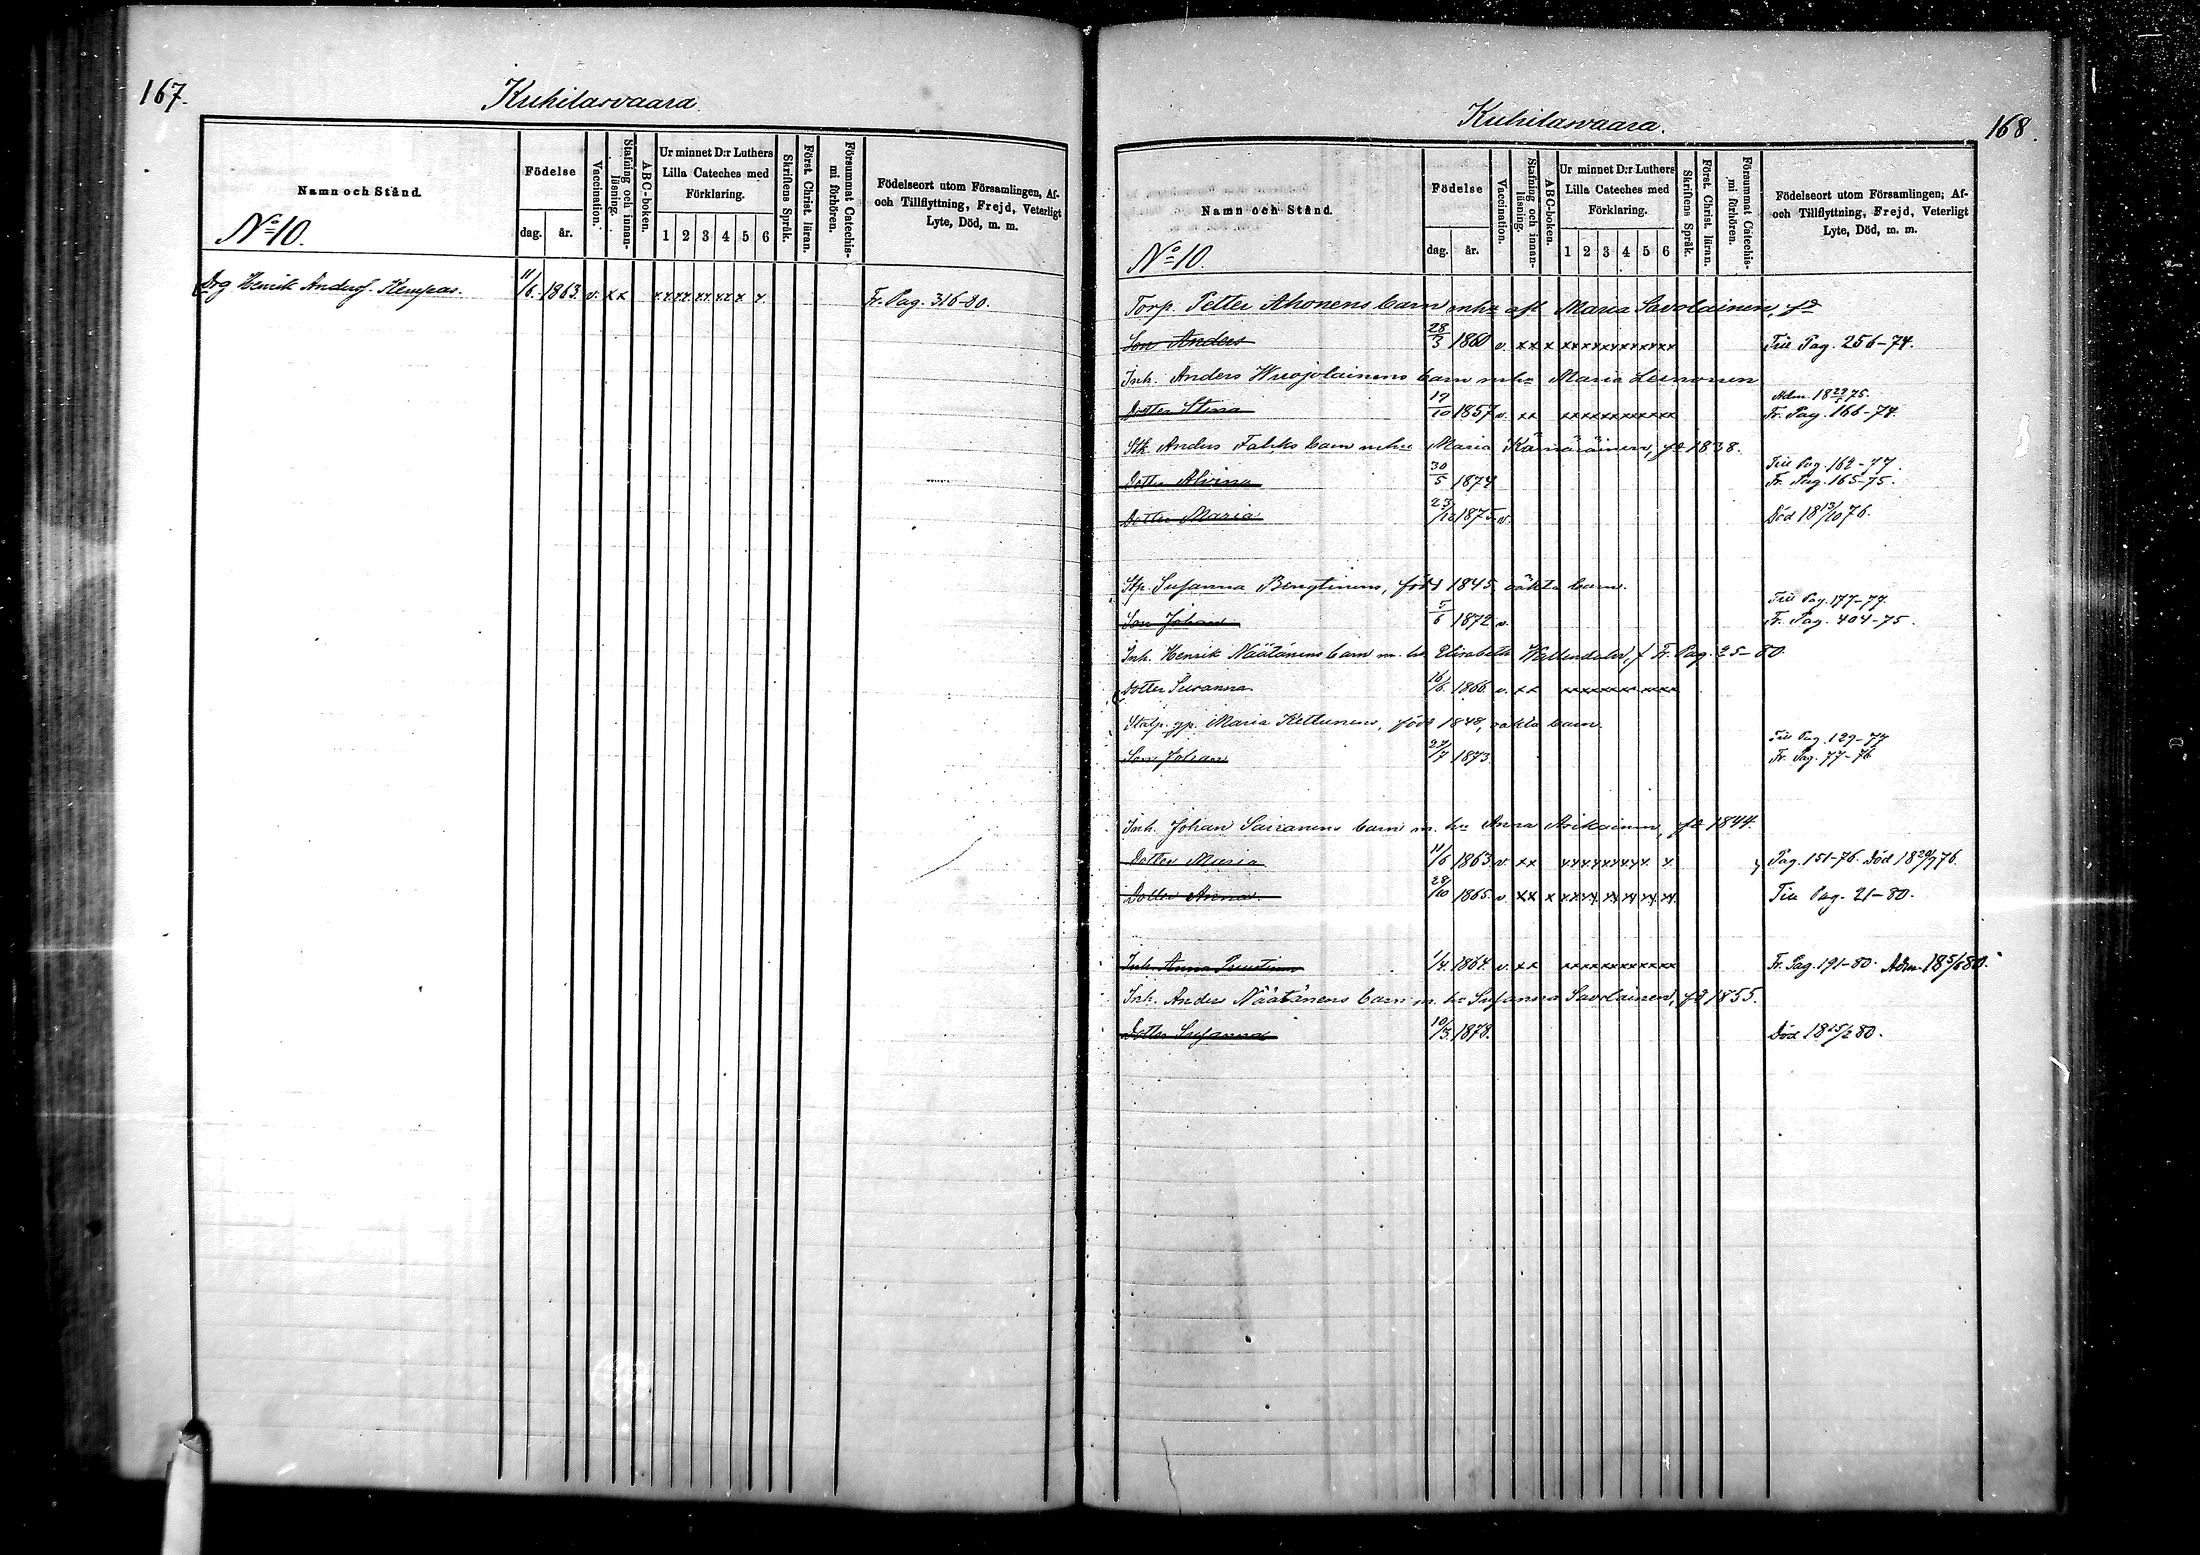 167.
Kuhilasvaara.
Namn och Stånd.
No 10.
Födelse
dag. år.
Vaccination.
Stafning och innan-
läsning.
ABC-boken.
Ur minnet D:r Luthers
Lilla Cateches med
Förklaring.
1 2 3 4 5 6
Skriftens Språk.
Först. Christ. läran.
Försummat Catechis-
mi förhören.
Födelseort utom Församlingen, Af-
och Tillflyttning, Frejd, Veterligt
Lyte, Död, m. m.
Drg Henrik Andersf. Kempas. 11/6. 1863. v. xx Fr. Pag. 316-80.
Kuhilasvaara.
168.
Namn och Stånd.
No 10.
Födelse
dag. år.
Vaccination.
Stafning och innan-
läsning.
ABC-boken.
Ur minnet D:r Luthers
Lilla Cateches med
Förklaring.
1 2 3 4 5 6
Skriftens Språk.
Först. Christ. läran.
Försummat Catechis-
mi förhören.
Födelseort utom Församlingen, Af-
och Tillflyttning, Frejd, Veterligt
Lyte, Död, m. m.
Torp. Petter Ahonens barn mhu afl Maria Savolainen, fd
Son Anders 28/3 1860 v. xx x Till Pag. 256-74.
Inh. Anders Wuojolainens barn mhu Maria Leinonen
Adm. 18 29/5 75.
Dotter Stina 19/10 1857 v. xx Fr. Pag. 166-74.
Stk. Anders Falcks barn mhu Maria Kärnäräinen, fd 1838.
Till Pag. 162-77.
Dotter Alvina 30/5 1874 Fr. Pag. 165-75.
Dotter Maria 23/12 1875 v. Död 18 13/10 76.
Stp. Susanna Bengtinens, född 1845, oäkta barn.
Till Pag. 177-77
Son Johan 5/6 1872 v. Fr. Pag. 404-75.
Inh. Henrik Näätänens barn m. hu Elisabeth Wallendahr, f Fr. Pag. 25-80.
Dotter Susanna. 16/6. 1866. v. xx
Statp. gp. Maria Kettunens, född 1848, oäkta barn.
Till Pag. 129-77
Son Johan 27/7 1873. Fr. Pag. 77-76
Inh. Johan Sairanens barn m. hu Anna Asikainen, fd 1844.
Dotter Maria 11/6 1863 v. xx Pag. 151-76. Död 18 20/7 76.
Dotter Anna 28/10 1865. v. xx x Till Pag. 21-80.
Inh. Anna 1/4. 1864. v. xx Fr. Pag. 191-80. Adm. 18 5/6 80.
Inh. Anders Näätänens barn m. hu Susanna Savolainen, fd 1855.
Dotter Susanna 10/3. 1878. Död 18 15/2 80.